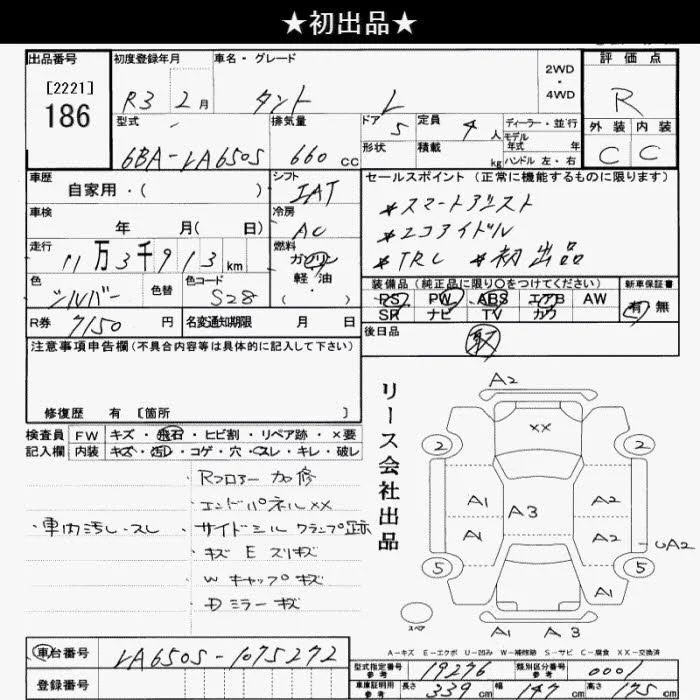 ★初出品★
出品番号 初度登録年月 車名・グレード 2WD・4WD 評価点
[2221]
186
R3 2月 タント L R
型式 排気量 ドア 5 定員 4人 ディーラー・並行 外装 内装
モデル年式 年
6BA-LA650S 660cc 形状 積載 kg ハンドル 左・右 C C
車歴 シフト セールスポイント(正常に機能するものに限ります)
自家用・( ) IAT
*スマートアシスト
車検 冷房
年 月( 日) AC
*エコアイドル
走行 燃料
11万3千913km ガソリン
軽・油
・( )
*TRC *初出品
色 色替 色コード 装備品(純正品に限り○をつけてください) 新車保証書
シルバー S28 PS PW ABS エアB AW 有 無
SR ナビ TV カワ
R券 7150円 名変通知期限 月 日 後日品
注意事項申告欄(不具合内容等は具体的に記入して下さい)
修復歴 有 [箇所 ]
リース会社出品
検査員 FW キズ・飛石・ヒビ割・リペア跡・×要
記入欄 内装 キズ・汚レ・コゲ・穴・スレ・キレ・破レ
・Rフロアー 加修
・エンドパネルXX
・車内汚レ・スレ ・サイドシル クランプ跡
・キズ E スリキズ
・W キャップ キズ
・Dミラー キズ
A2
XX
2 2
A1 A3 A2
A1 A2 UA2
5 5
A1
スペア
A1 A3
A-キズ E-エクボ U-凹み W-補修跡 S-サビ C-腐食 XX-交換済
車台番号 LA650S-1075272
登録番号
型式指定番号 参考 19276 類別区分番号 参考 0001
車庫証明用 参考 長さ 339cm 幅 147cm 高さ 175cm